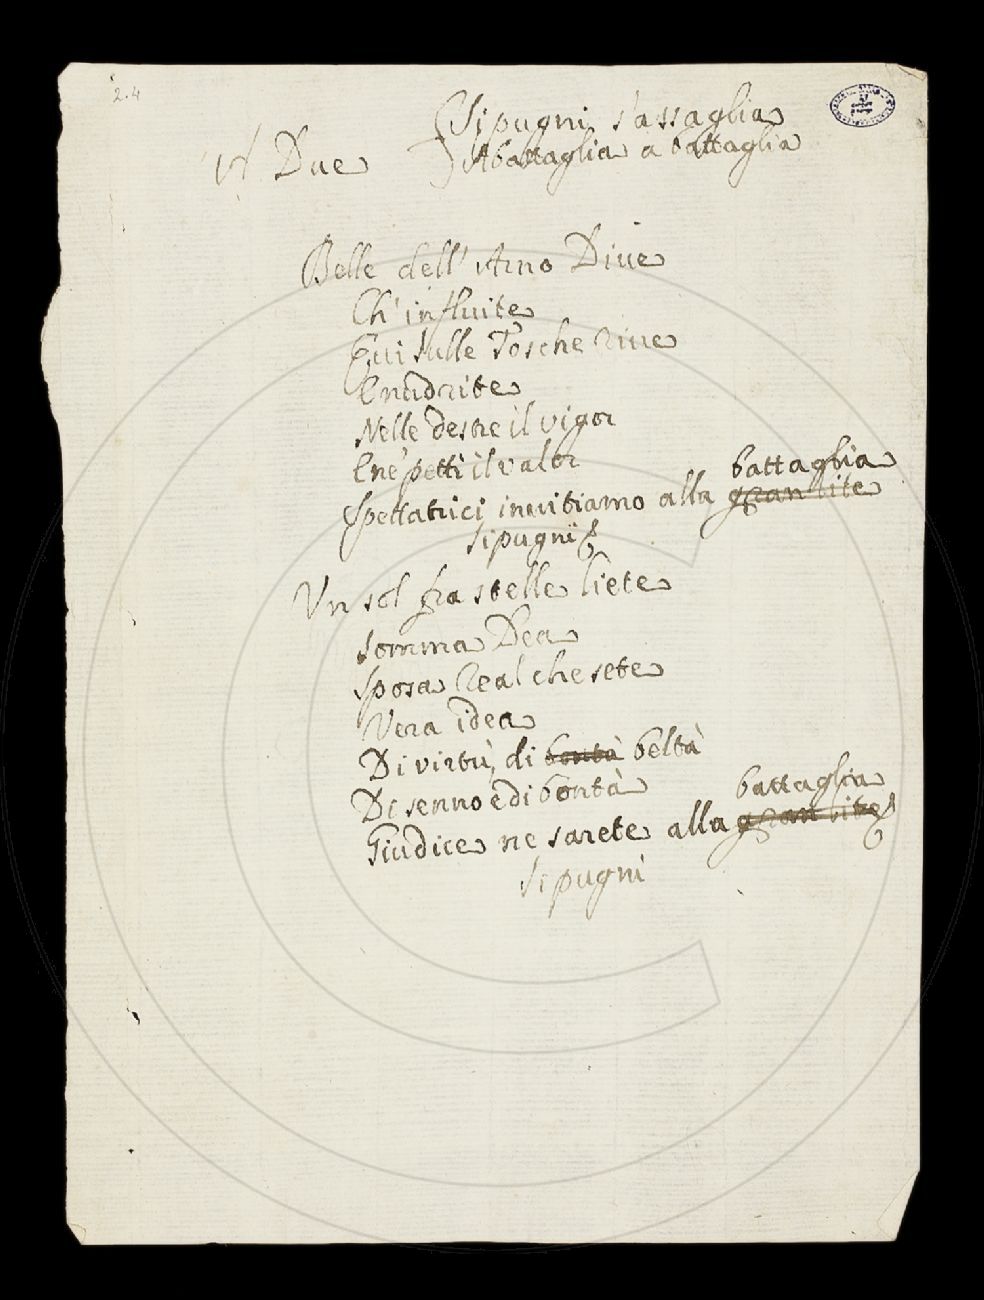 2.4
Si pugni s'assaglia
A Due
A battaglia a battaglia
Belle dell'Arno Diue
Ch'influite
Qui sulle Tosche riue
E nudrite
Nelle destre il vigor
E ne' petti il valor
battaglia
Spettatrici inuitiamo alla gran lite
Si pugni
Vn sol fra stelle liete
Somma Dea
Sposa Real che sete
Vera idea
Di virtù, di bontà beltà
Di senno e di bontà
battaglia
Giudice ne sarete alla gran lite
Si pugni